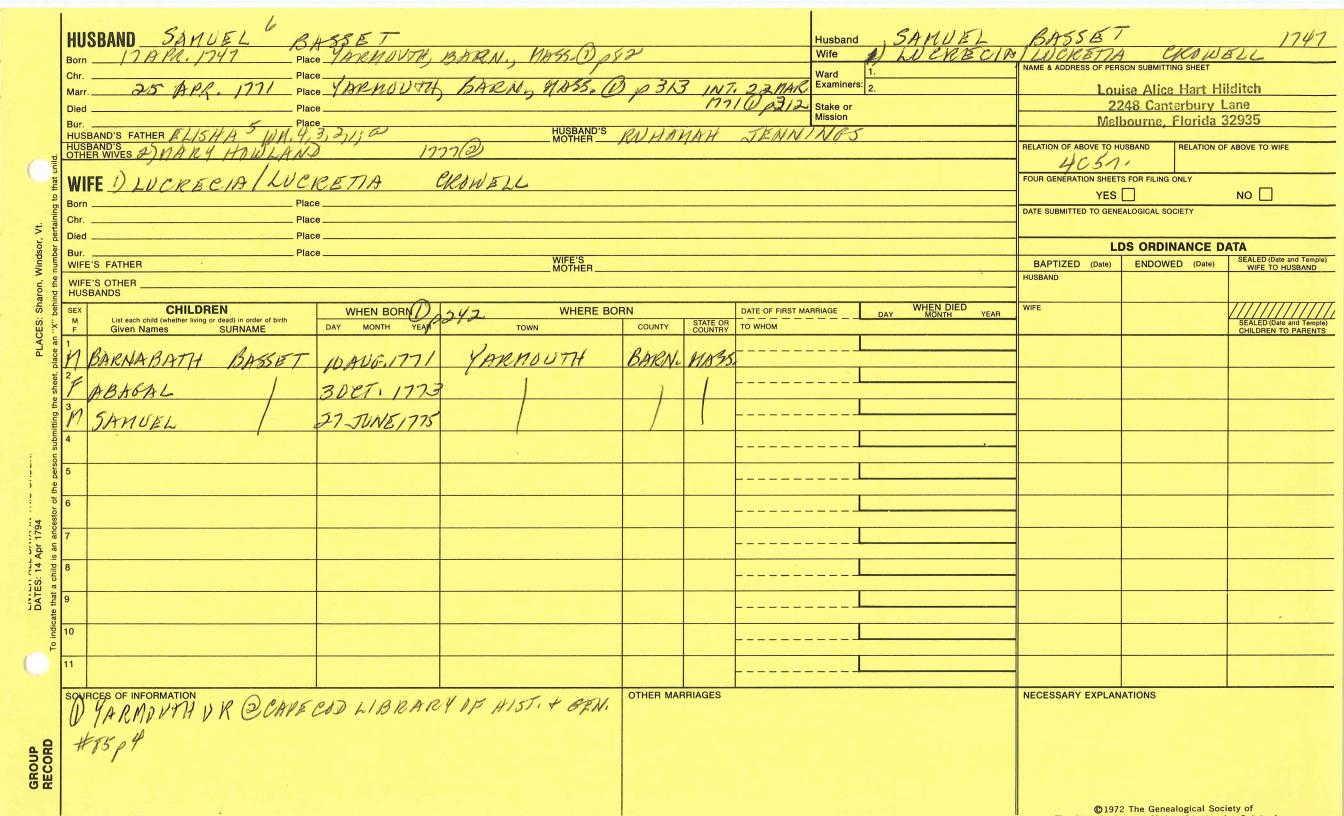 HUSBAND SAMUEL 6 BASSET
Born 17 APR. 1747 Place YARMOUTH, BARN., MASS. ① p82
Chr. Place
Marr. 25 APR. 1771 Place YARMOUTH, BARN., MASS. ① p 313 INT. 22 MAR
1771 ① p312
Died Place
Bur. Place
HUSBAND'S FATHER ELISHA 5 WM. 4, 3, 2, 1; ② HUSBAND'S MOTHER RUHAMAH JENNINGS
HUSBAND'S OTHER WIVES 2) MARY HOWLAND 1777 ②
Husband SAMUEL BASSET 1747
Wife 1) LUCRECIA/LUCRETIA CROWELL
Ward Examiners: 1.
2.
Stake or Mission
NAME & ADDRESS OF PERSON SUBMITTING SHEET
Louise Alice Hart Hilditch
2248 Canterbury Lane
Melbourne, Florida 32935
RELATION OF ABOVE TO HUSBAND RELATION OF ABOVE TO WIFE
4C5r.
FOUR GENERATION SHEETS FOR FILING ONLY
YES NO
DATE SUBMITTED TO GENEALOGICAL SOCIETY
WIFE 1) LUCRECIA/LUCRETIA CROWELL
Born Place
Chr. Place
Died Place
Bur. Place
WIFE'S FATHER WIFE'S MOTHER
WIFE'S OTHER HUSBANDS
LDS ORDINANCE DATA
BAPTIZED (Date) ENDOWED (Date) SEALED (Date and Temple) WIFE TO HUSBAND
HUSBAND
WIFE
SEALED (Date and Temple) CHILDREN TO PARENTS
SEX M F CHILDREN WHEN BORN ① p242 WHERE BORN DATE OF FIRST MARRIAGE WHEN DIED
List each child (whether living or dead) in order of birth
Given Names SURNAME DAY MONTH YEAR TOWN COUNTY STATE OR COUNTRY TO WHOM DAY MONTH YEAR
1 M BARNABATH BASSET 10 AUG. 1771 YARMOUTH BARN. MASS.
2 F ABAGAL 3 OCT. 1773
3 M SAMUEL 27 JUNE 1775
4
5
6
7
8
9
10
11
SOURCES OF INFORMATION
① YARMOUTH VR ② CAPE COD LIBRARY OF HIST. & GEN.
#85 p4
OTHER MARRIAGES
NECESSARY EXPLANATIONS
©1972 The Genealogical Society of
PLACES: Sharon, Windsor, Vt.
DATES: 14 Apr 1794
To indicate that a child is an ancestor of the person submitting the sheet, place an "X" behind the number pertaining to that child.
GROUP RECORD